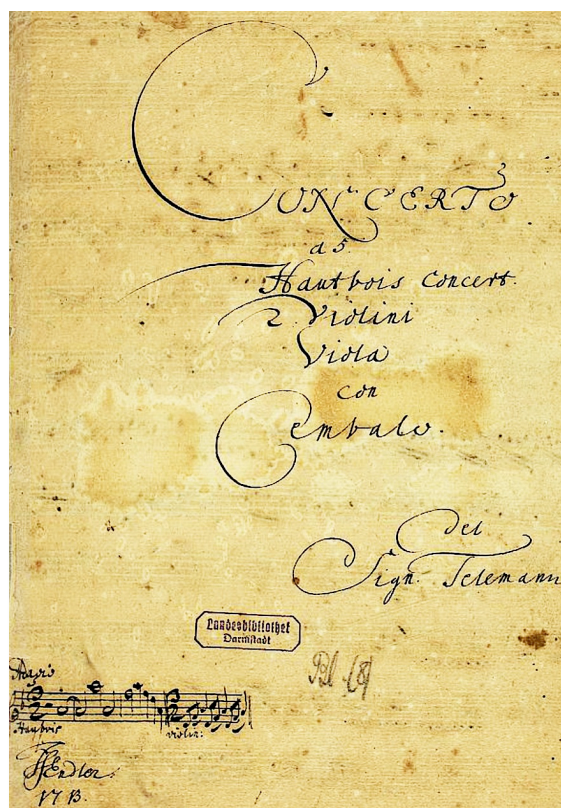 CONCERTO
a 5.
Hautbois Concert.
2 Violini
Viola
con
Cembalo.
del
Sign. Telemann
Landesbibliothek
Darmstadt
Adagio
Hautbois
violin:
Endler
1713.